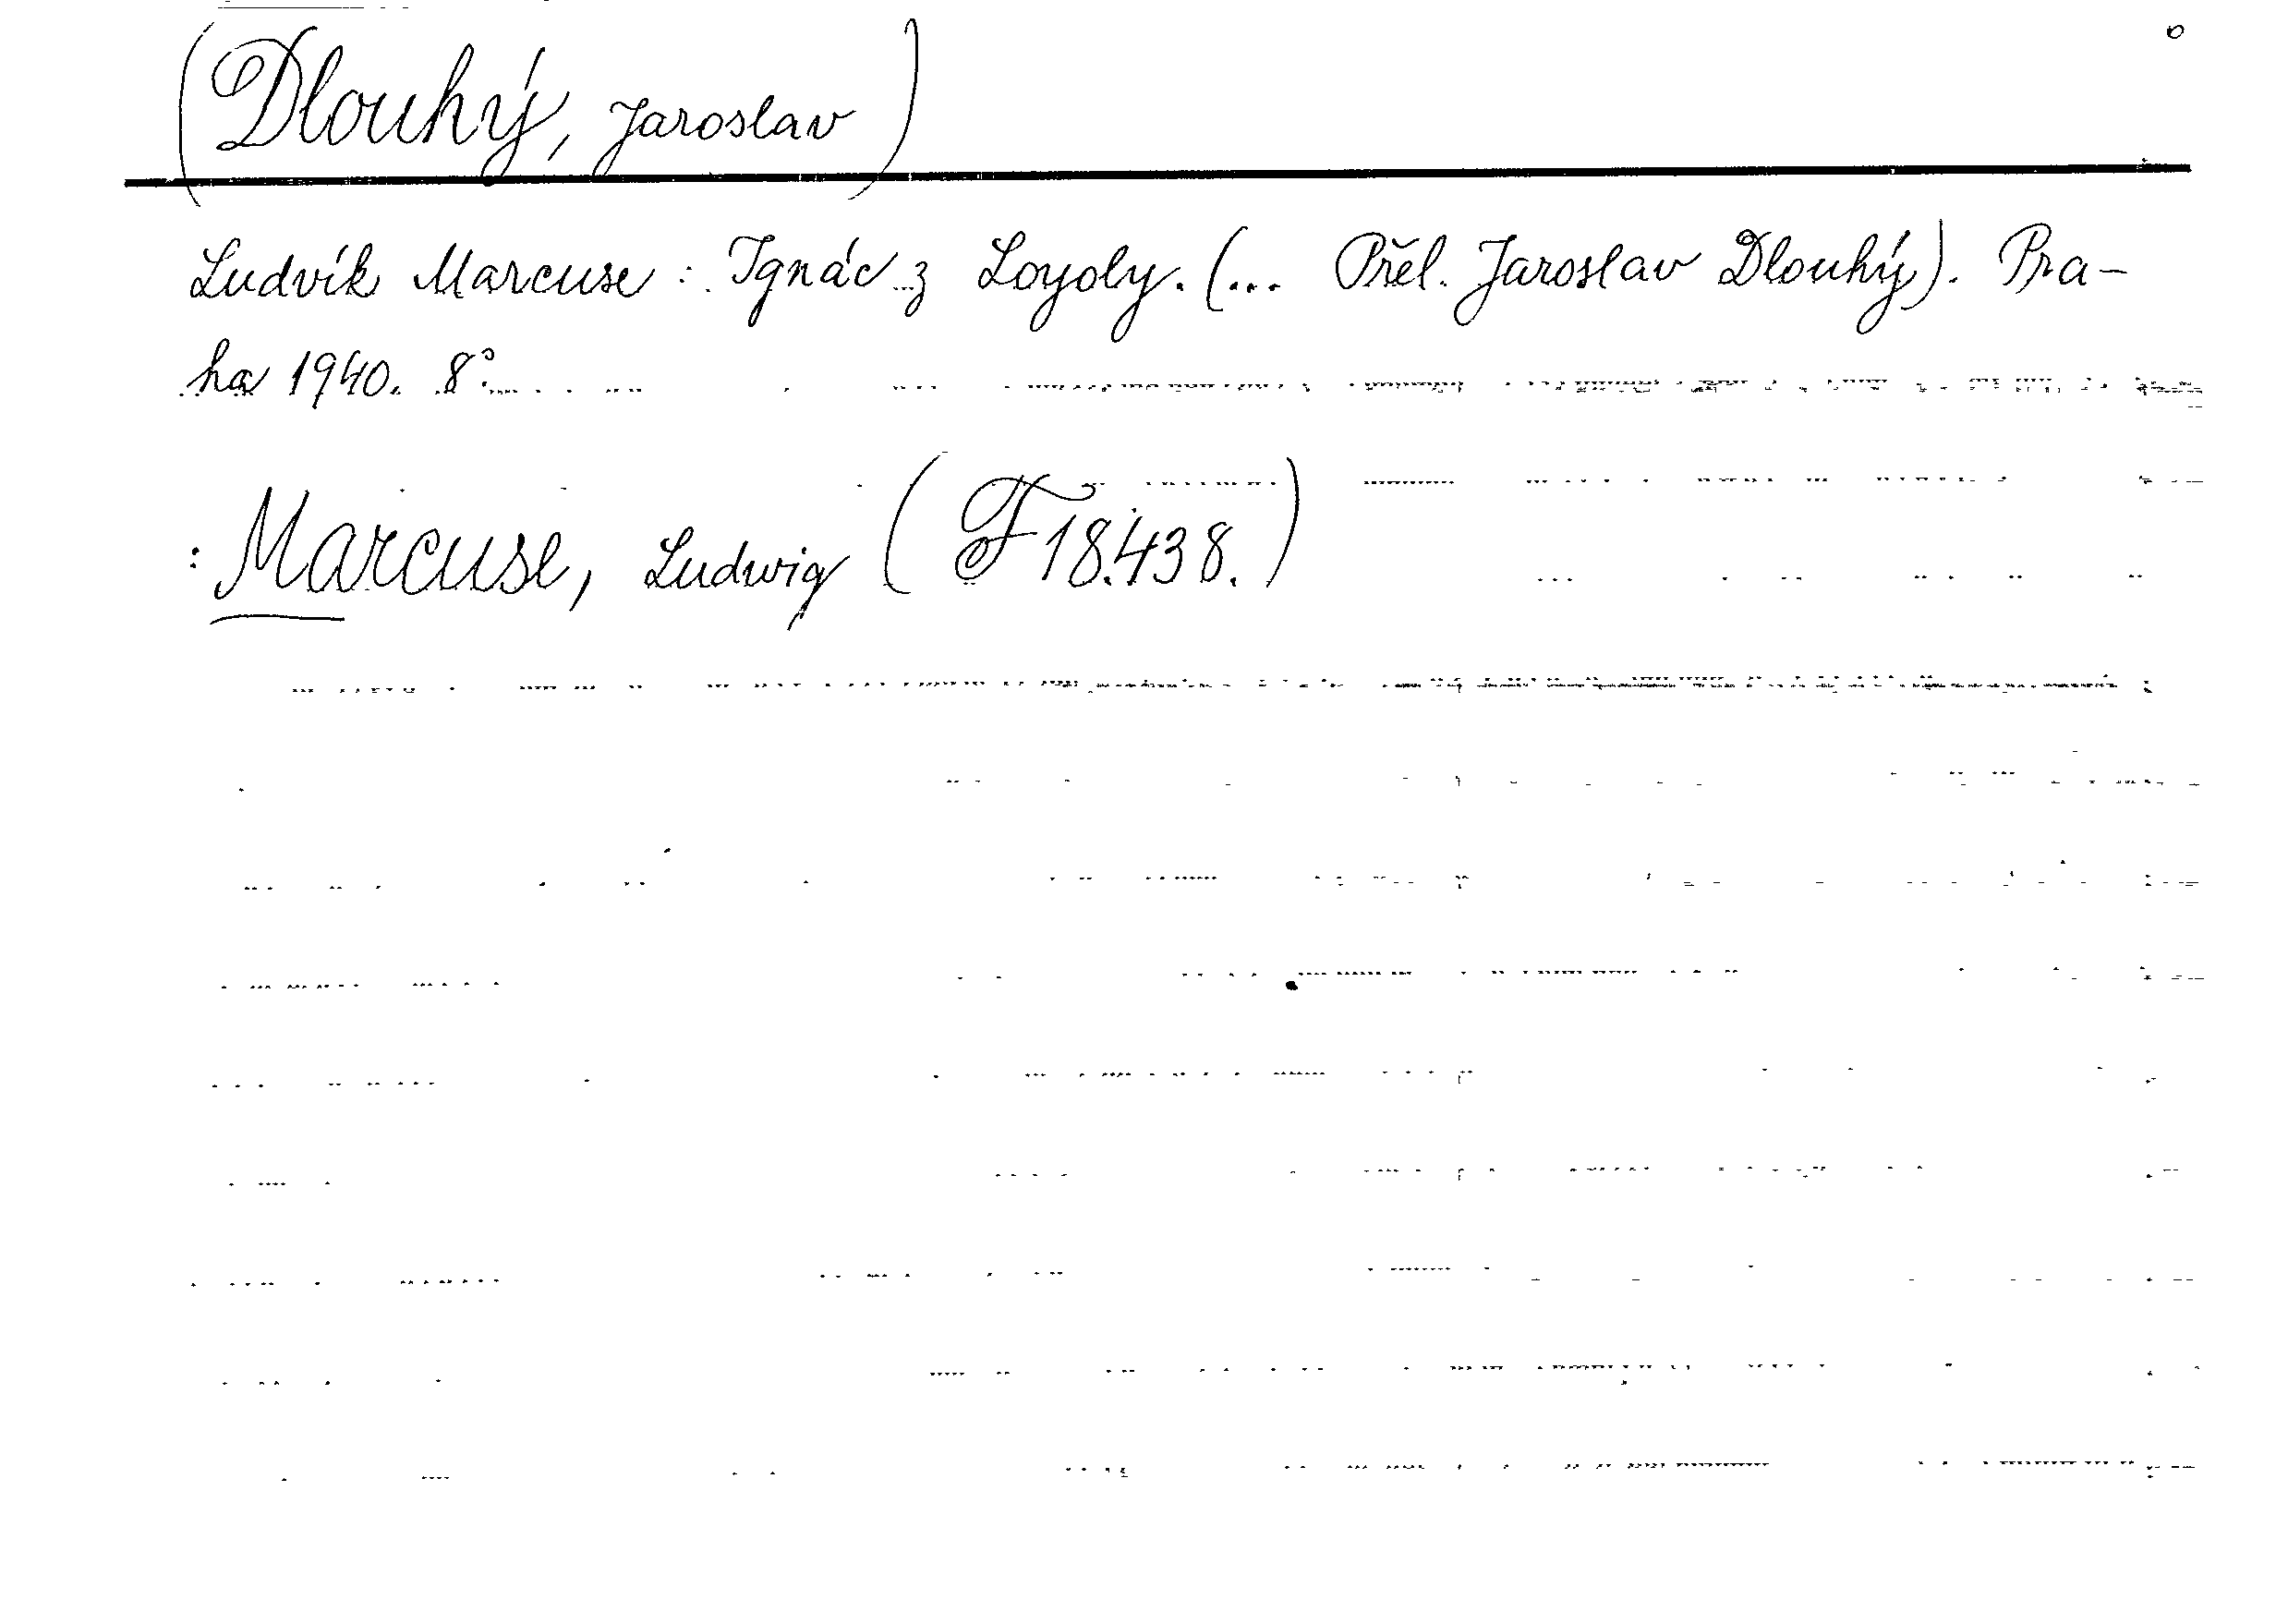 (Dlouhý, Jaroslav)
Ludvík Marcuse: Ignác z Loyoly. (... Přel. Jaroslav Dlouhý). Pra-
ha 1940. 8°.
: Marcuse, Ludwig (F 18.438.)